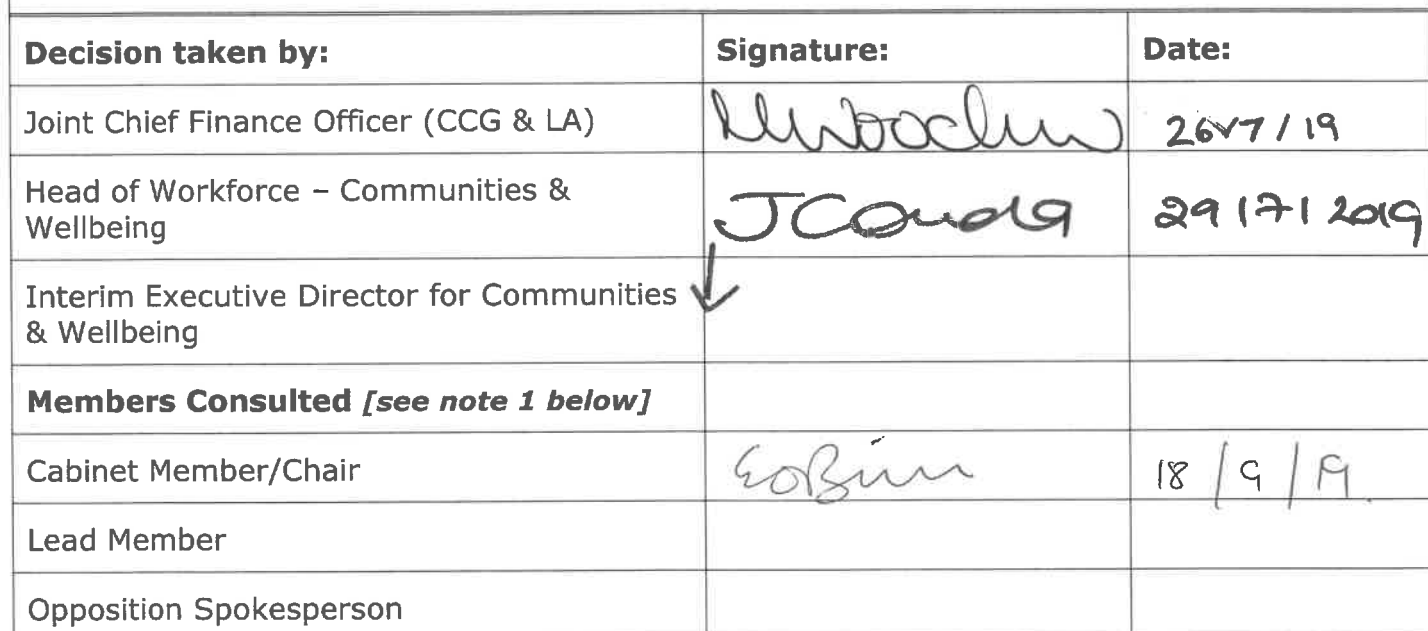 Decision taken by: Signature: Date:
Joint Chief Finance Officer (CCG & LA) 26/7/19
Head of Workforce – Communities &
Wellbeing 29/7/2019
Interim Executive Director for Communities
& Wellbeing
Members Consulted [see note 1 below]
Cabinet Member/Chair 18/9/19.
Lead Member
Opposition Spokesperson